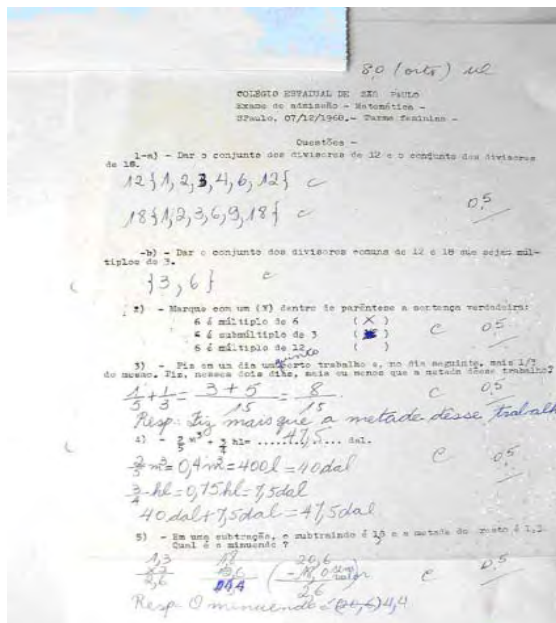 8,0 (oito)
COLÉGIO ESTADUAL DE SÃO PAULO
Exame de admissão - Matemática -
SPaulo, 07/12/1968.- Turma feminina -
Questões -
1-a) - Dar o conjunto dos divisores de 12 e o conjunto dos divisores
de 18.
12 } 1, 2, 3, 4, 6, 12 } c
18 } 1, 2, 3, 6, 9, 18 } c 0,5
-b) - Dar o conjunto dos divisores comuns de 12 e 18 que sejam múl-
tiplos de 3.
{ 3, 6 } c
2) - Marque com um (X) dentro de parêntese a sentença verdadeira:
6 é múltiplo de 6 ( X )
6 é submúltiplo de 3 ( ) c 0,5
6 é múltiplo de 12 ( )
3) - Fiz em um dia um quinto trabalho e, no dia seguinte, mais 1/3
do mesmo. Fiz, nesses dois dias, mais ou menos que a metade desse trabalho?
1/5 + 1/3 = 3 + 5 / 15 = 8 / 15 c 0,5
Resp: Fiz mais que a metade dêsse trabalh
4) - 2/5 m³ + 3/4 hl= ....47,5.... dal.
2/5 m³ = 0,4 m³ = 400 l = 40 dal c 0,5
3/4 hl = 0,75 hl = 7,5 dal
40 dal + 7,5 dal = 47,5 dal
5) - Em uma subtração, o subtraindo é 18 e a metade do resto é 1,3
Qual é o minuendo ?
1,3 1,8 20,6
2,6 4,4 2,6 c 0,5
Resp. O minuendo é (20,6) 4,4